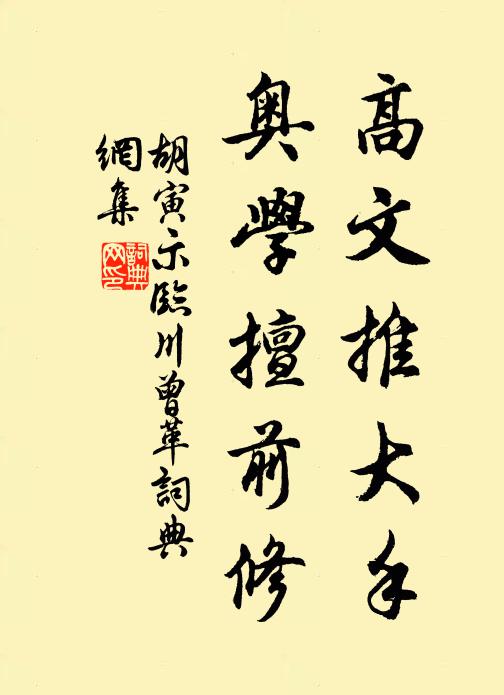 高文推大手
奥學擅前修
胡寅示臨川曾革詞典
網集
詞典
网印